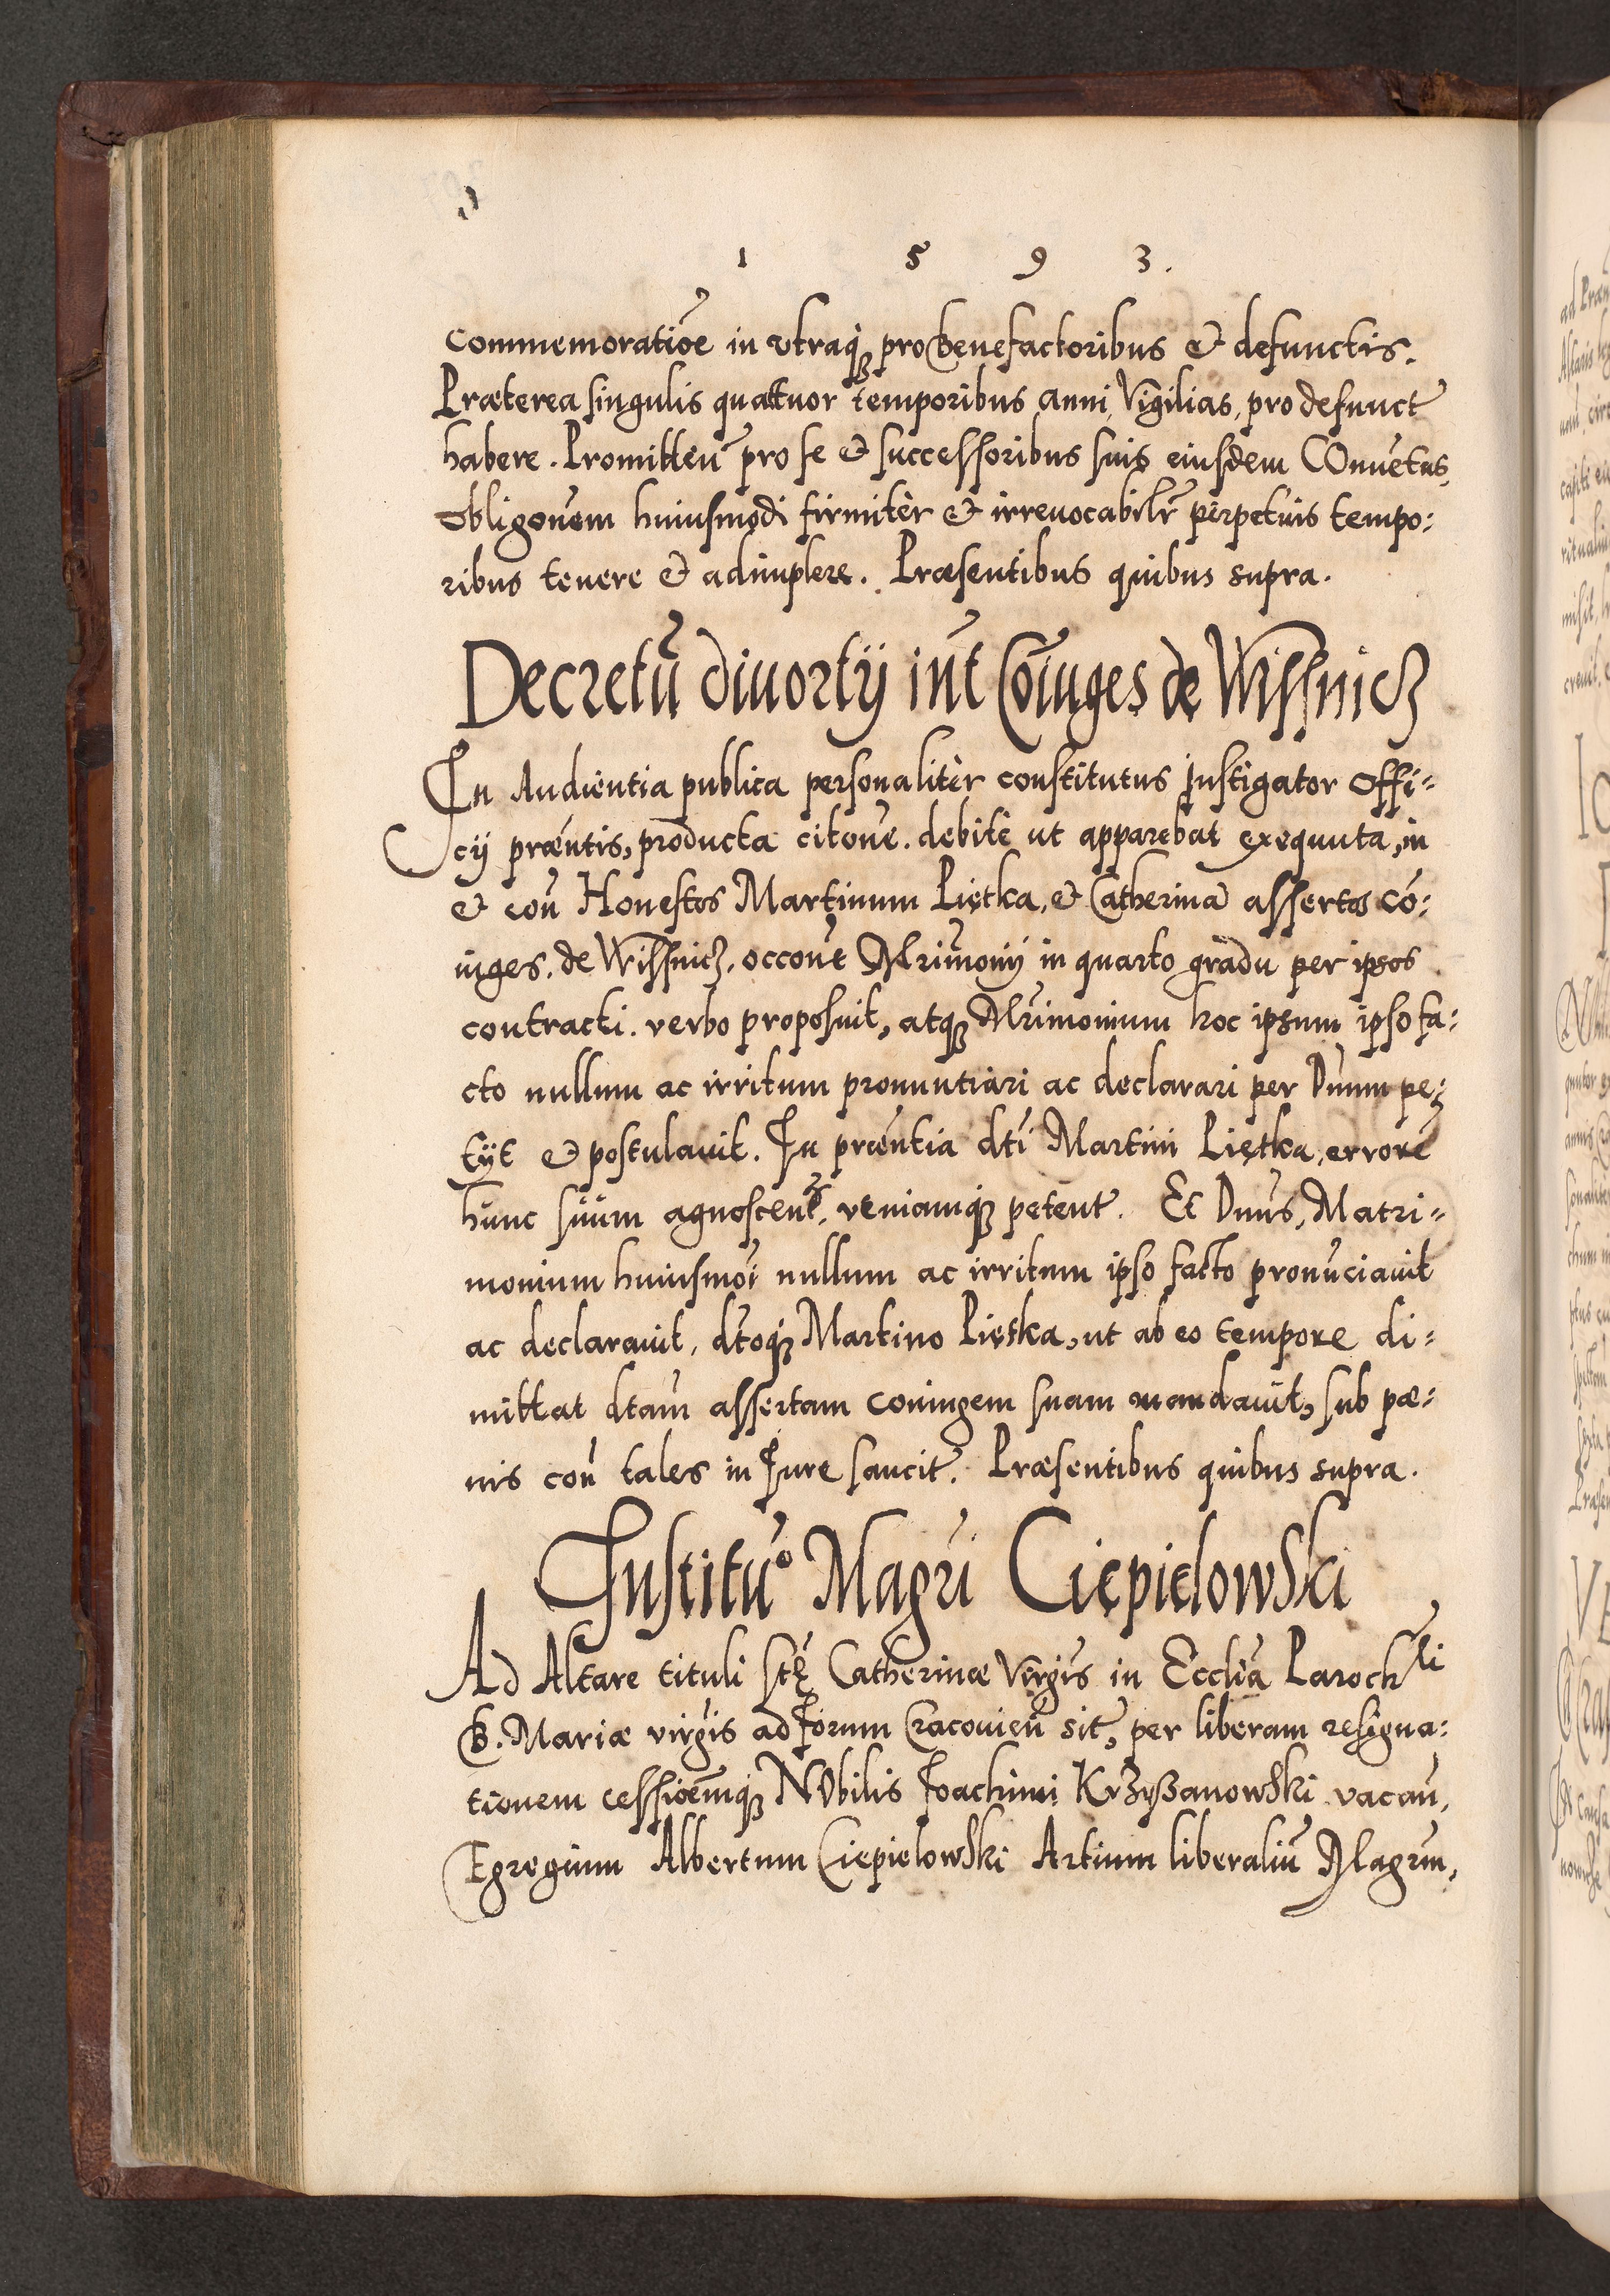 1 5 9 3.
commemoratiõe in vtraq₃ pro benefactoribus & defunctis.
Præterea singulis quattuor temporibus anni, Vigilias, pro defunct
habere. Promitteñ pro se & successoribus suis eiusdem COnuẽtus,
obligoñem huiusmodi firmiter & irreuocabilr̃ perpetuis tempo:
ribus tenere & adimplere. Præsentibus quibus supra.
Decretũ diuortij int̃ Cõiuges de Wissnicz
In Audientia publica personaliter constitutus Instigator Offi=
cij præntis, producta citoñe. debite ut apparebat exequuta, in
& coñ Honestos Martinum Piętka, & Catherinã assertos cõ:
iuges. de Wissnicz, occoñe Mr̃imonij in quarto gradu per ipsos
contracti. verbo proposuit, atq₃ Mr̃imonium hoc ipsum ipso fa:
cto nullum ac irritum pronuntiari ac declarari per Dnum pe:
tijt & postulauit. In præntia dti Martini Piętka, errorẽ
hunc suum agnoscent, veniamq₃ petent. Et Dnus, Matri=
monium huiusmoi nullum ac irritum ipso facto pronũciauit
ac declarauit, dtoq₃ Martino Piętka, ut ab eo tempore di=
mittat dtam assertam coniugem suam mandauit, sub pæ=
nis coñ tales in Iure sancit. Præsentibus quibus supra.
Institũo Magri Ciepielowski
Ad Altare tituli stę Catherinæ Virgis in Ecclia Paroch^li
B. Mariæ virgis ad forum Cracouieñ sit, per liberam resigna:
tionem cessioẽmq₃ NObilis Joachimi Krzyßanowski vacañ,
Egregium Albertum Ciepielowski Artium liberaliũ Magrum,